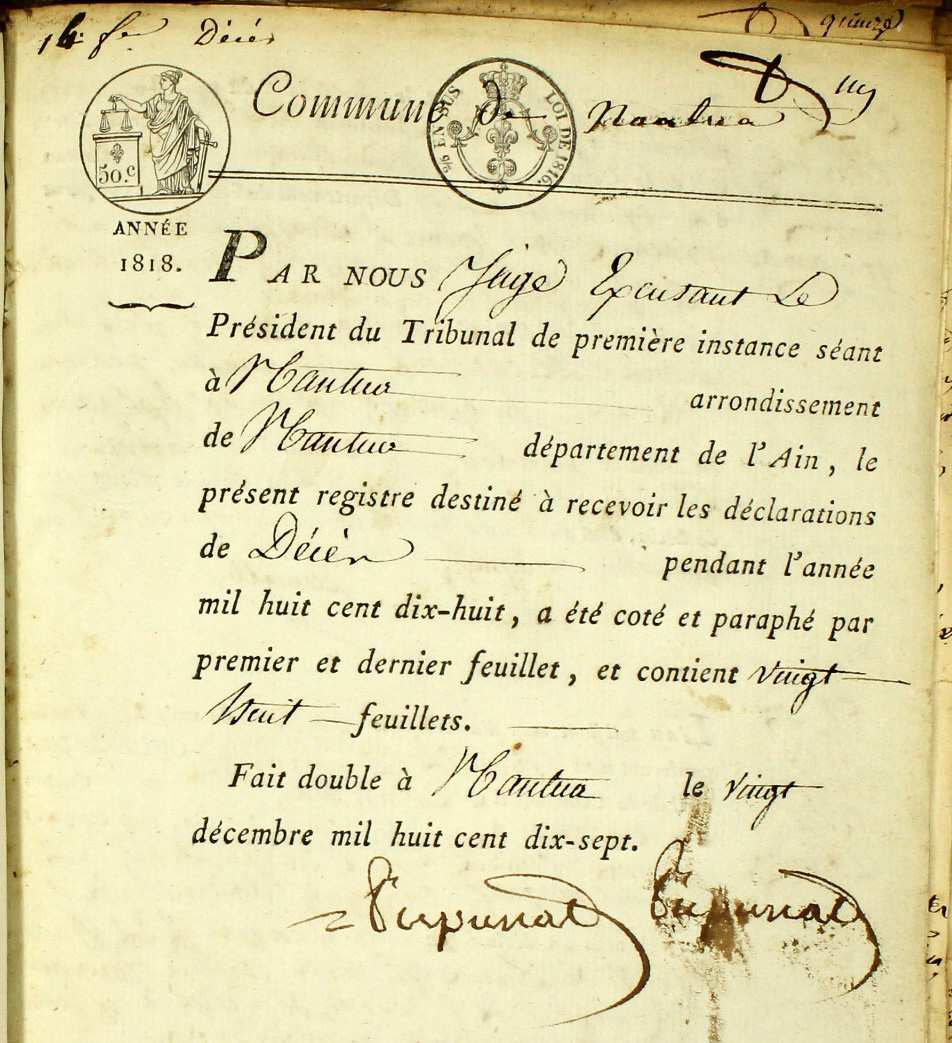 Décès
quinze
Commune de Nantua
50.c
EN SUS
LOI DE 1816.
ANNÉE
1818.
PAR NOUS Juge Exerçant Le
Président du Tribunal de première instance séant
à Nantua arrondissement
de Nantua département de l'Ain, le
présent registre destiné à recevoir les déclarations
de Décès pendant l'année
mil huit cent dix-huit, a été coté et paraphé par
premier et dernier feuillet, et contient vingt
huit feuillets.
Fait double à Nantua le vingt
décembre mil huit cent dix-sept.